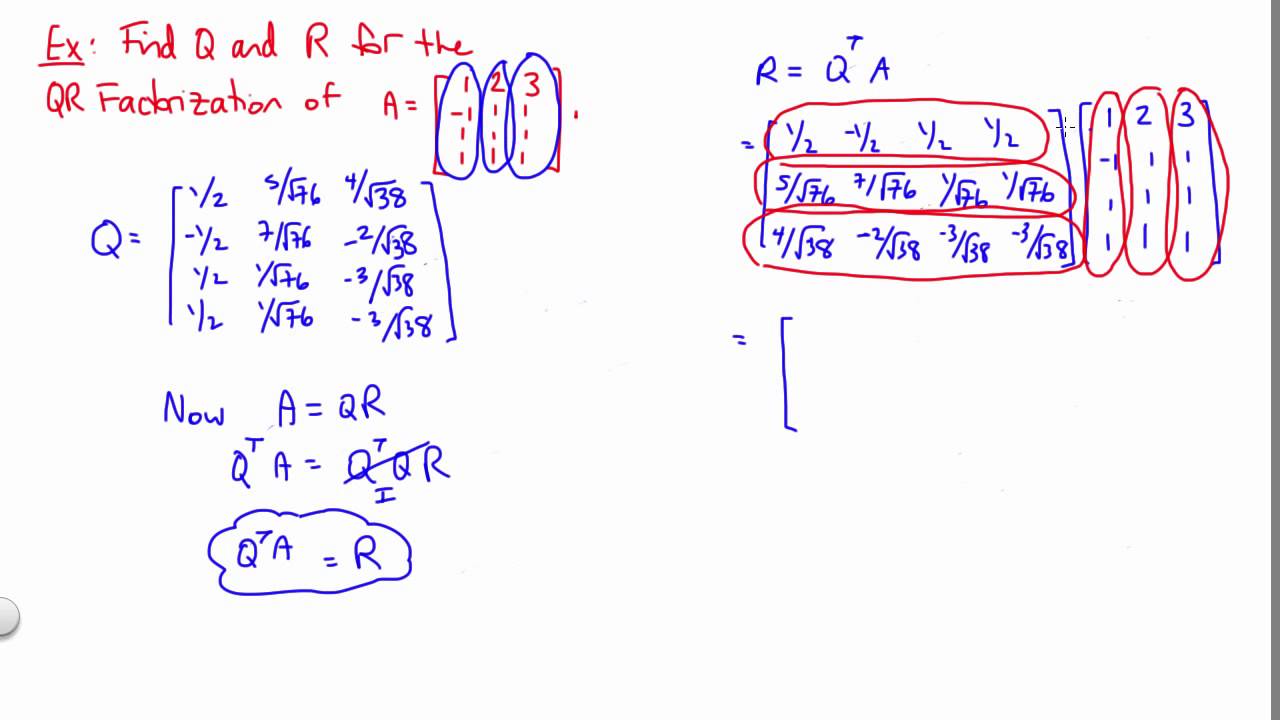 Ex: Find Q and R for the
QR Factorization of A = [1 2 3
-1 1 1
1 1 1
1 1 1].
Q = [1/2 5/√76 4/√38
-1/2 7/√76 -2/√38
1/2 1/√76 -3/√38
1/2 1/√76 -3/√38]
Now A = QR
Q^T A = Q^T Q R
I
Q^T A = R
R = Q^T A
= [1/2 -1/2 1/2 1/2] [1 2 3
5/√76 7/√76 1/√76 1/√76 -1 1 1
4/√38 -2/√38 -3/√38 -3/√38 1 1 1
1 1 1]
= [